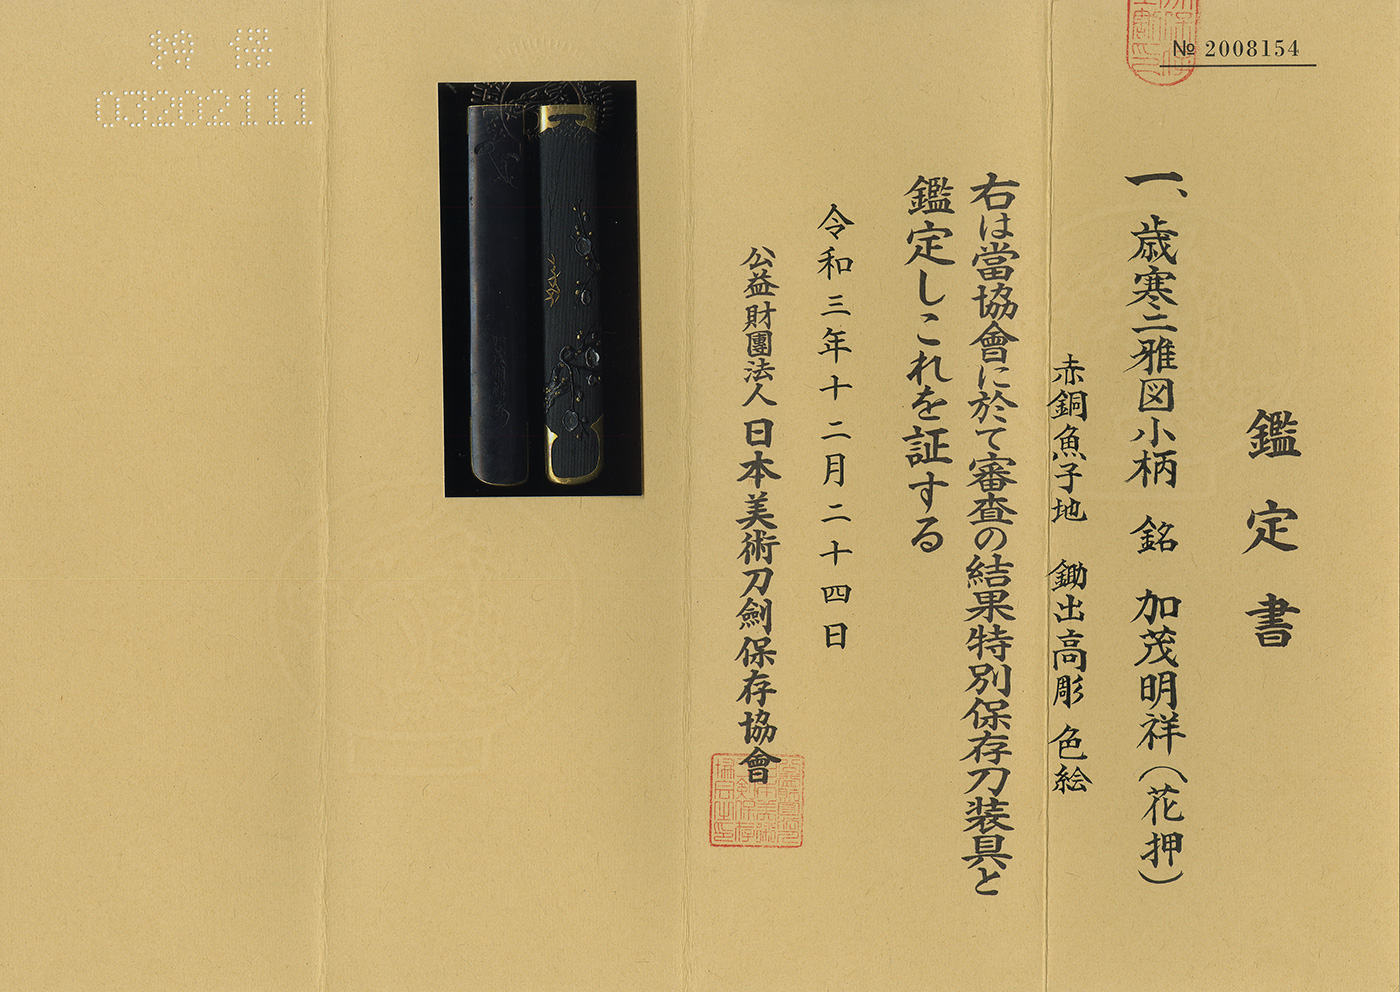 № 2008154
鑑定書
一、歳寒二雅図小柄 銘 加茂明祥（花押）
赤銅魚子地 鋤出高彫 色絵
右は當協會に於て審査の結果特別保存刀装具と
鑑定しこれを証する
令和三年十二月二十四日
公益財團法人 日本美術刀劍保存協會
03202111